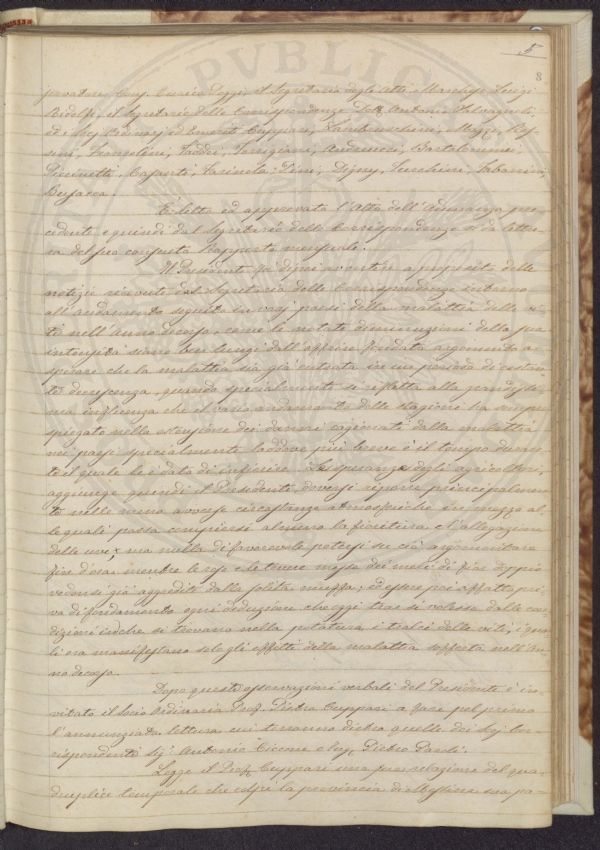 5
8
provatore Cons. Enrico Poggi, il Segretario degli Atti Marchese Luigi
Ridolfi, il Segretario delle Corrispondenze Dott. Antonio Salvagnoli
ed i Sigg. Ordinarj ed Emeriti Cuppari, Lambruschini, Mazzi, Ros-
sini, Franzolini, Taddei, Andreucci, Bartolommei
Piccinetti, Caputo, Farinola, Pini, Digny, Lucchini, Sabatini
Busacca.
È letto ed approvato l'Atto dell'Adunanza pre-
cedente e quindi dal Segretario delle Corrispondenze si dà lettu-
ra del suo consueto Rapporto mensuale.
Il Presidente fa dipoi avvertire a proposito delle
notizie ricevute dal Segretario delle Corrispondenze intorno
all'andamento seguito in varj paesi della malattia delle vi-
ti nell'Anno decorso, come le notate diminuzioni della sua
intensità siano ben lungi dall'offrire fondato argomento a
sperare che la malattia sia già entrata in un periodo di costan-
te decrescenza, quando specialmente si rifletta alla grandissi-
ma influenza che il vario andamento delle stagioni ha sempre
spiegato nella estensione dei danni cagionati dalla malattia
nei paesi specialmente laddove più breve è il tempo duran-
te il quale le è dato di infierire. Le speranze degli agricoltori,
aggiunge quindi il Presidente doversi riporre principalmen-
te nelle meno avverse circostanze atmosferiche in mezzo al-
le quali possa compiersi almeno la fioritura e l'allegazione
delle uve, ma nulla di favorevole potersi su ciò argomentare
fin d'ora mentre le rose e le nuove messe dei meli di già
vedonsi già aggredite dalla solita muffa; ed essere poi affatto pri-
va di fondamento ogni deduzione che oggi trar si volesse dalle con-
dizioni in che si trovano nella potatura i tralci delle viti, i qua-
li ora manifestano solo gli effetti della malattia sofferta nell'An-
no decorso.
Dopo queste osservazioni verbali del Presidente è in-
vitato il Socio Ordinario Prof. Pietro Cuppari a fare pel primo
l'annunziata lettura cui terranno dietro quelle dei Sigg. Cor-
rispondenti Sig. Antonio Ciccone e Ing. Pietro Pardi.
Legge il Prof. Cuppari una sua relazione del qua-
druplice temporale che colpì la provincia di Messina sua pa-